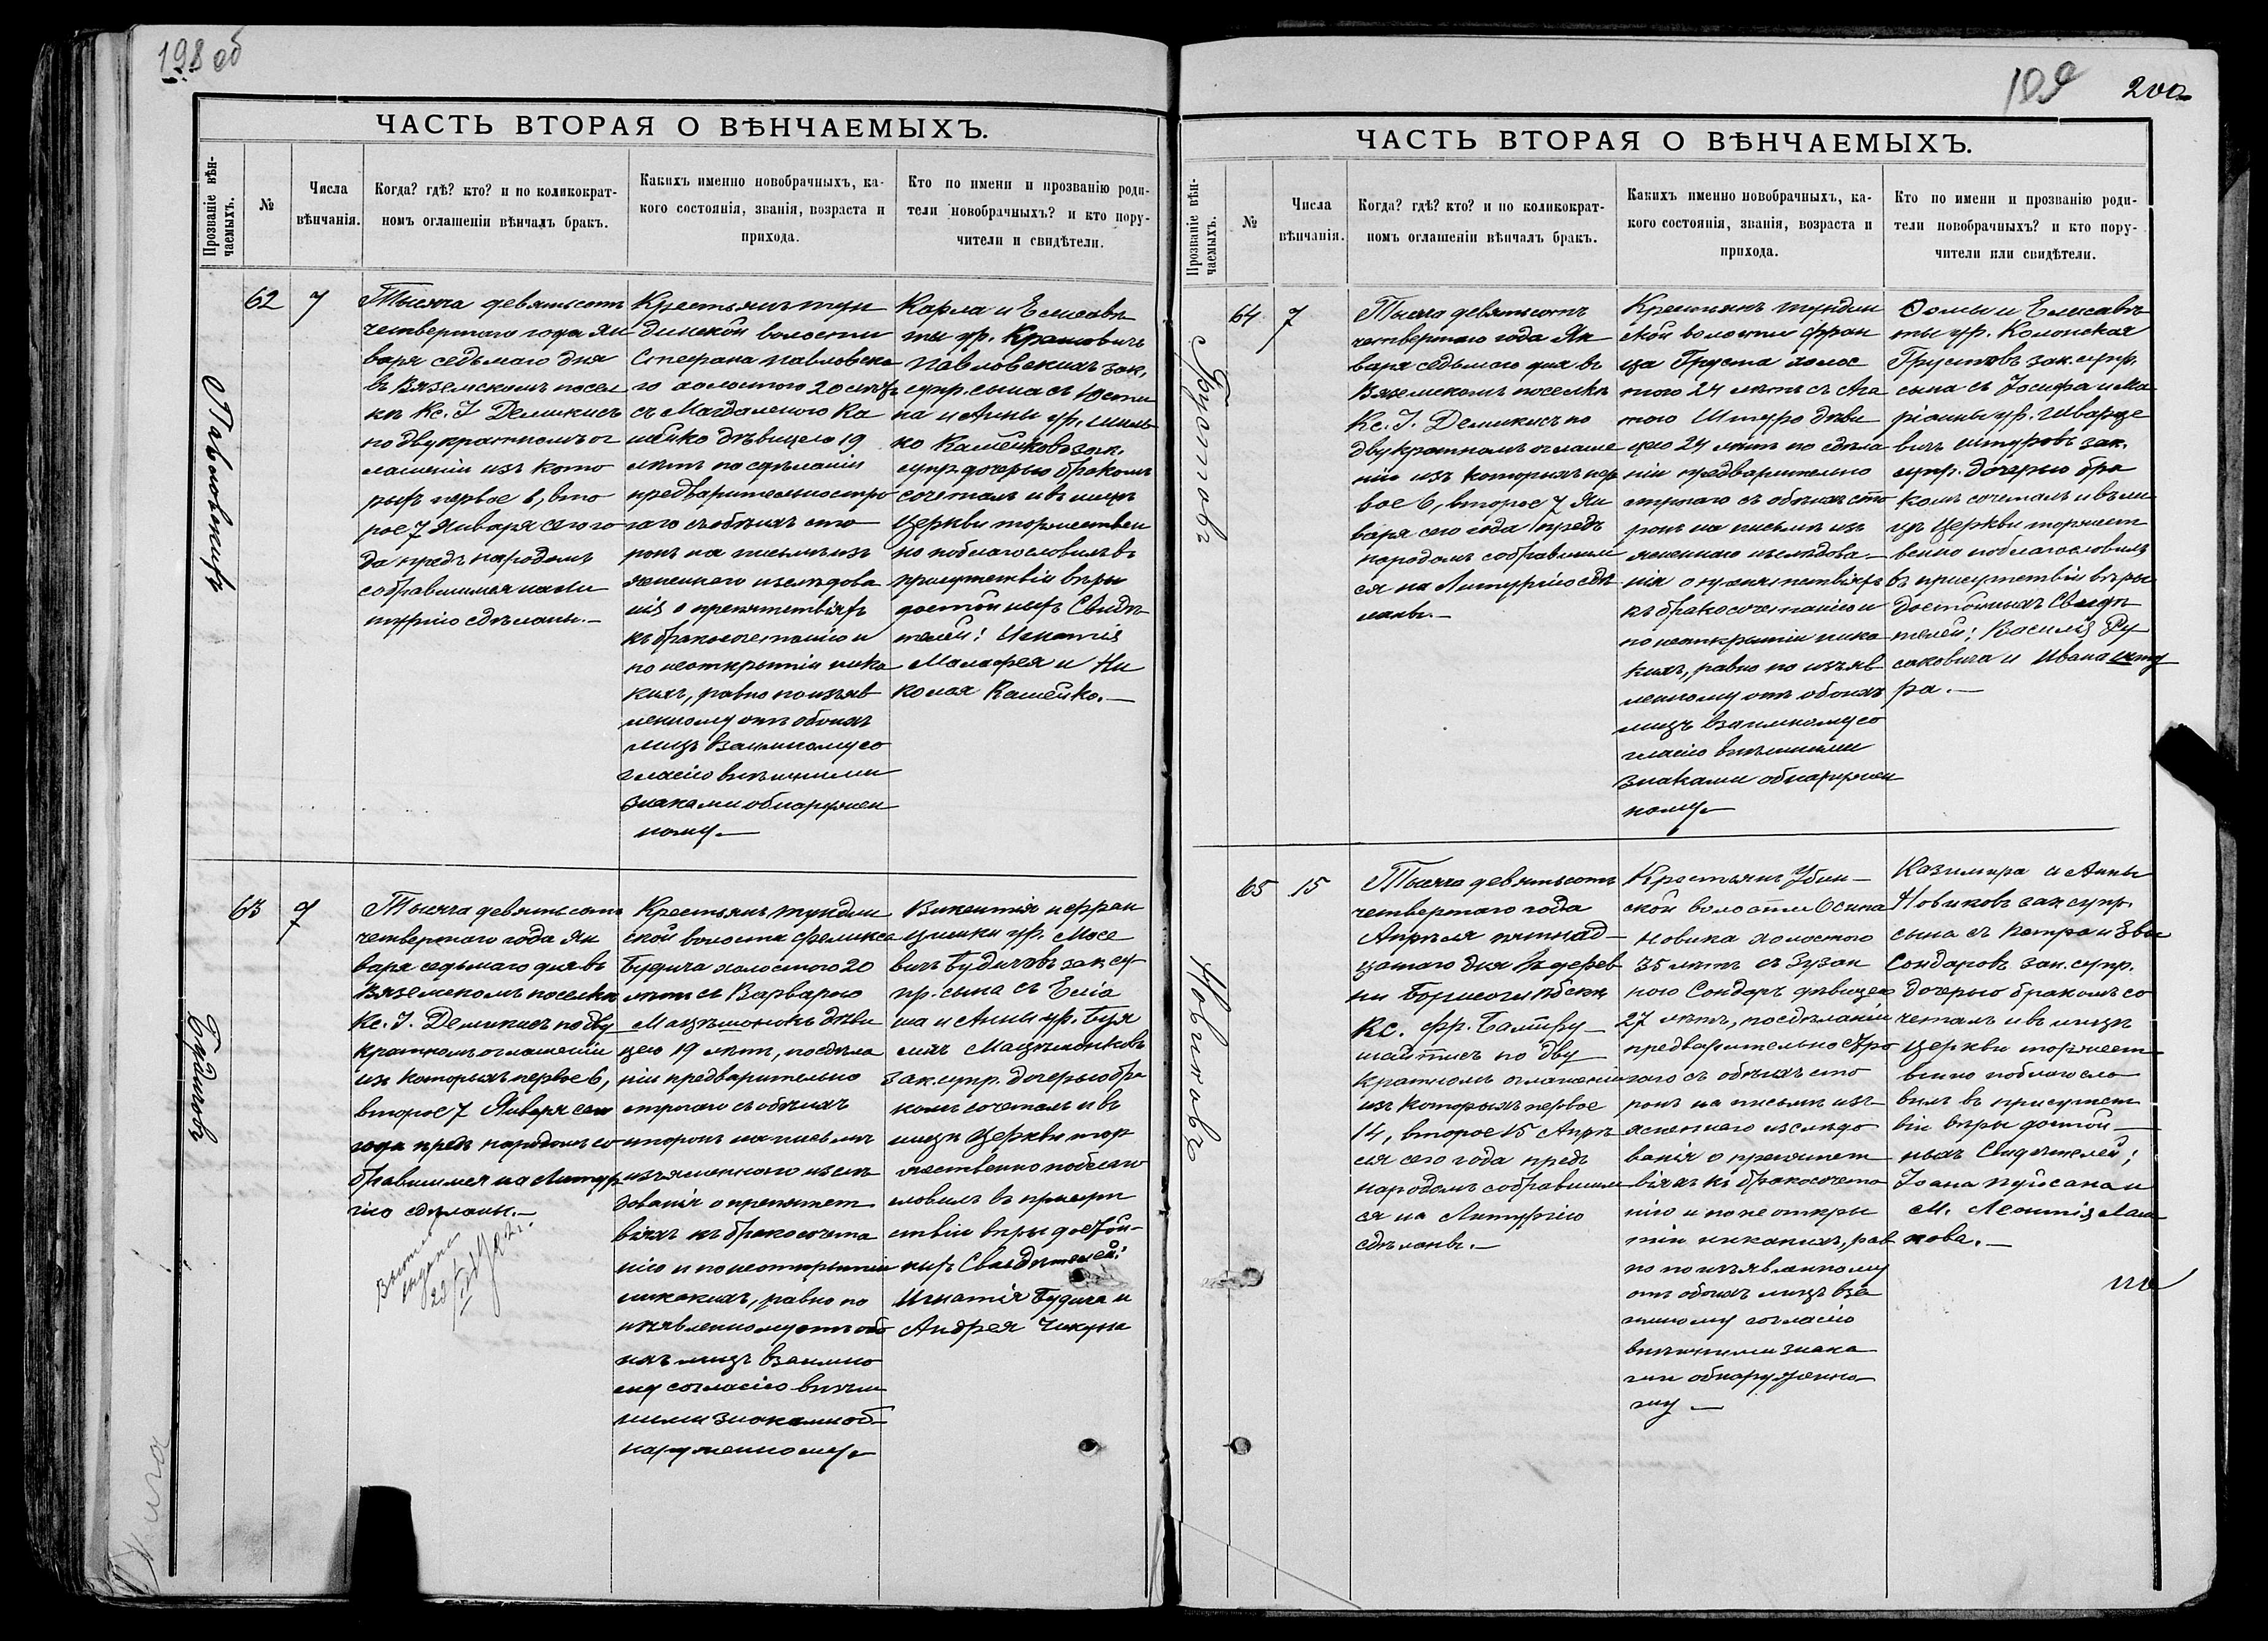 198 об
ЧАСТЬ ВТОРАЯ О ВѢНЧАЕМЫХЪ.
Прозваніе вѣн-
чаемыхъ.
№
Числа
вѣнчанія.
Когда? гдѣ? кто? и по коликократ-
номъ оглашеніи вѣнчалъ бракъ.
Какихъ именно новобрачныхъ, ка-
кого состоянія, званія, возраста и
прихода.
Кто по имени и прозванію роди-
тели новобрачныхъ? и кто пору-
чители и свидѣтели.
Павловскихъ
62
7
Тысяча девятьсотъ
четвертаго года Ян
варя седьмаго дня
въ Вяземскомъ посел
кѣ Кс. І. Демикисъ
по двукратномъ ог
лашеніи изъ кото
рыхъ первое 6, вто
рое 7 Января сего го
да предъ народомъ
собравшимся на Ли
тургію сдѣланы.—
Крестьянъ Тун
динской волости
Стефана Павловска
го холостого 20 лѣтъ
съ Магдаленою Ка
шейко дѣвицею 19
лѣтъ по сдѣланіи
предварительно стро
гаго съ обѣихъ сто
ронъ на письмѣ изъ
ясненнаго изслѣдова
нія о препятствіяхъ
къ бракосочетанію и
по неоткрытіи ника
кихъ, равно по изъяв
ленному отъ обоихъ
лицъ взаимному со
гласію внѣшними
знаками обнаружен
ному.—
Карла и Елисаве
ты ур. Крашовичъ
Павловскихъ зак.
супр. сына съ Юсти
на и Анны ур. Шиль
ко Кашейковъ зак.
супр. дочерью бракомъ
сочеталъ и въ лицѣ
Церкви торжествен
но поблагословилъ въ
присутствіи вѣры
достойныхъ Свидѣ
телей: Игнатія
Малафея и Ни
колая Кашейко.—
Будичовъ
63
7
Тысяча девятьсотъ
четвертаго года Ян
варя седьмаго дня въ
Вяземскомъ поселкѣ
Кс. І. Демикисъ по дву
кратномъ оглашеніи
изъ которыхъ первое 6,
второе 7 Января сего
года предъ народомъ со
бравшимся на Литур
гію сдѣланы.—
Крестьянъ Тундин
ской волости Феликса
Будича холостого 20
лѣтъ съ Варварою
Мацѣшонокъ дѣви
цею 19 лѣтъ, по сдѣла
ніи предварительно
строгаго съ обѣихъ
сторонъ на письмѣ
изъясненнаго изслѣ
дованія о препятст
віяхъ къ бракосочета
нію и по неоткрытіи
никакихъ, равно по
изъявленному отъ обо
ихъ лицъ взаимно
му согласію внѣш
ними знаками об
наруженному.
Викентія и Фран
цишки ур. Мосе
вичъ Будичовъ зак. су
пр. сына съ Еліа
ша и Анны ур.
Мацѣшонковъ
зак. супр. дочерью бра
комъ сочеталъ и въ
лицѣ Церкви тор
жественно поблаго
словилъ въ присут
ствіи вѣры достой-
ныхъ Свидѣтелей:
Игнатія Будича и
Андрея Чикуна
200
ЧАСТЬ ВТОРАЯ О ВѢНЧАЕМЫХЪ.
Прозваніе вѣн-
чаемыхъ.
№
Числа
вѣнчанія.
Когда? гдѣ? кто? и по коликократ-
номъ оглашеніи вѣнчалъ бракъ.
Какихъ именно новобрачныхъ, ка-
кого состоянія, званія, возраста и
прихода.
Кто по имени и прозванію роди-
тели новобрачныхъ? и кто пору-
чители или свидѣтели.
Грустовъ
64
7
Тысяча девятьсотъ
четвертаго года Ян
варя седьмаго дня въ
Вяземскомъ поселкѣ
Кс. І. Демикисъ по
двукратномъ оглаше
ніи изъ которыхъ пер
вое 6, второе 7 Ян
варя сего года предъ
народомъ собравшим
ся на Литургію сдѣ
ланы.—
Крестьянъ Тундин
ской волости Фран
ца Груста холос
того 24 лѣтъ съ Ага
тою Штуро дѣви
цею 24 лѣтъ по сдѣла
ніи предварительно
строгаго съ обѣихъ сто
ронъ на письмѣ изъ
ясненнаго изслѣдова-
нія о препятствіяхъ
къ бракосочетанію и
по неоткрытіи ника
кихъ, равно по изъяв
ленному отъ обоихъ
лицъ взаимному со
гласію внѣшними
знаками обнаружен
ному.—
Ѳомы и Елисаве
ты ур. Колонская
Грустовъ зак. супр.
сына съ Іосифа и Ма
ріанны ур. Шварце
вичъ Штуровъ зак.
супр. дочерью бра
комъ сочеталъ и въ ли
цѣ Церкви торжест
венно поблагословилъ
въ присутствіи вѣры
достойныхъ Свидѣ
телей: Василія Ру
саковича и Ивана Шту
ра.—
Новиковъ
65
15
Тысяча девятьсотъ
четвертаго года
Апрѣля пятнад-
цатаго дня въ дерев
ни
Кс. Фр.
по дву
кратномъ оглашеніи
изъ которыхъ первое
14, второе 15 Апрѣ
ля сего года предъ
народомъ собравшим
ся на Литургію
сдѣланы.—
Крестьянъ Убин-
ской волости Осипа
Новика холостого
35 лѣтъ съ Зузан
ною Сондоръ дѣвицею
27 лѣтъ, по сдѣланіи
предварительно стро
гаго съ обѣихъ сто
ронъ на письмѣ изъ-
ясненнаго изслѣдо
ванія о препятст
віяхъ къ бракосочета
нію и по неоткры
тіи никакихъ, рав
но по изъявленному
отъ обоихъ лицъ вза
имному согласію
внѣшними знака
ми обнаруженно
му —
Казимира и Анны
Новиковъ зак. супр.
сына съ Петра и Эвы
Сондоровъ зак. супр.
дочерью бракомъ со
четалъ и въ лицѣ
Церкви торжест-
венно поблагосло
вилъ въ присутст
віи вѣры достой-
ныхъ Свидѣтелей:
Іоана Пуйсана и